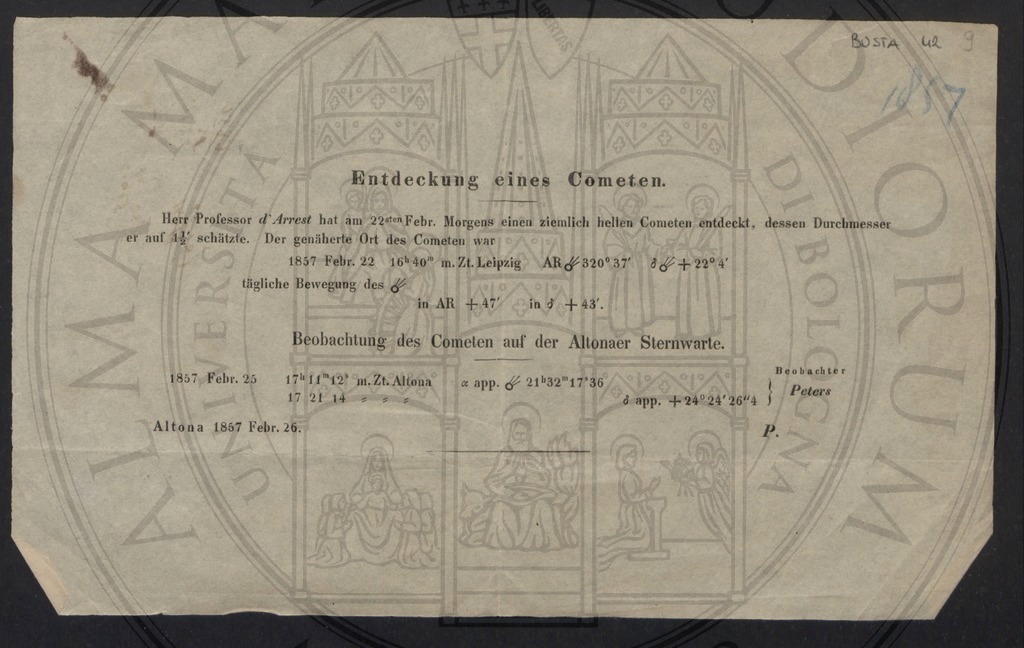 BUSTA 42 9
1857
Entdeckung eines Cometen.
Herr Professor d'Arrest hat am 22sten Febr. Morgens einen ziemlich hellen Cometen entdeckt, dessen Durchmesser
er auf 1½' schätzte. Der genäherte Ort des Cometen war
1857 Febr. 22 16h 40m m. Zt. Leipzig AR ☄ 320° 37' δ ☄ + 22° 4'
tägliche Bewegung des ☄
in AR + 47' in δ + 43'.
Beobachtung des Cometen auf der Altonaer Sternwarte.
Beobachter
1857 Febr. 25 17h 11m 12s m. Zt. Altona α app. ☄ 21h 32m 17s 36
17 21 14 〃 〃 〃 δ app. + 24° 24' 26" 4 } Peters
Altona 1857 Febr. 26. P.
ALMA MATER STUDIORUM
UNIVERSITÀ DI BOLOGNA
LIBERTAS